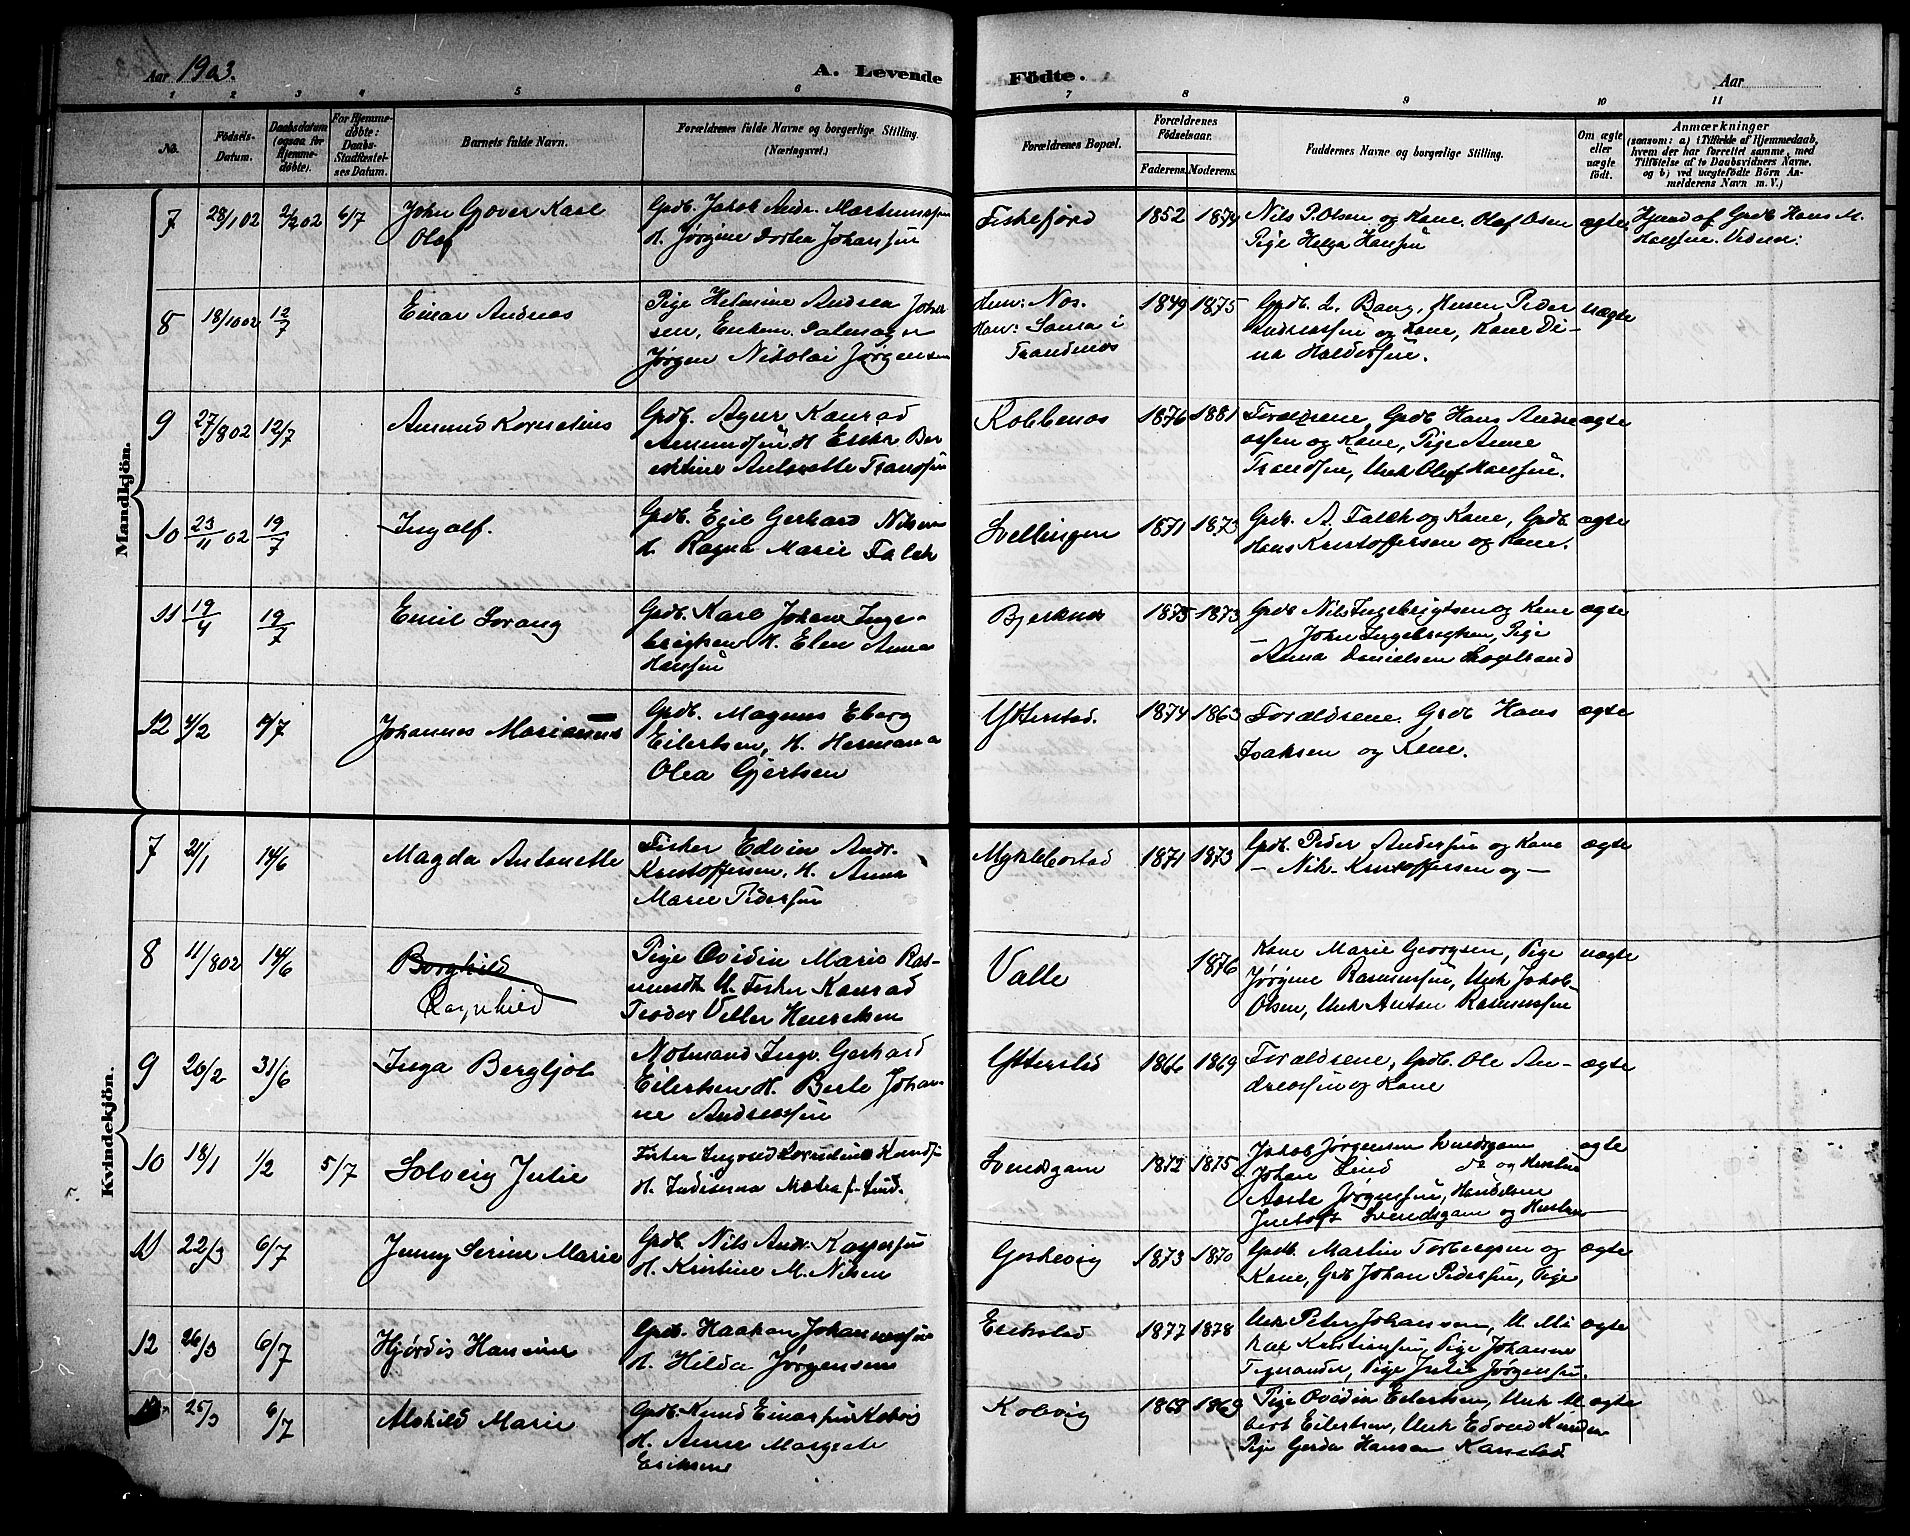 Aar 1903.
A. Levende
Födte.
Aar
1 2 3 4 5 6 7 8 9 10 11
No.
Födsels-
Datum.
Daabsdatum
(ogsaa for
Hjemme-
døbte).
For Hjemme-
døbte:
Daabs-
Stadfæstel-
ses Datum.
Barnets fulde Navn.
Forældrenes fulde Navne og borgerlige Stilling.
(Næringsvei.)
Forældrenes Bopæl.
Forældrenes
Födselsaar.
Faderens. Moderens.
Faddernes Navne og borgerlige Stilling.
Om ægte
eller
uægte
født.
Anmærkninger
(saasom: a) i Tilfælde af Hjemmedaab,
hvem der har forrettet samme, med
Tilföielse af to Daabsvidners Navne.
og b) ved uægtefödte Börn An-
melderens Navn m. V.)
Mandkjön.
7 28/1 02 2/2 02 6/7 John Gøver Karl
Olaf
Grdb. Jakob Andr. Martinussen
H. Jørgine Dortea Johansen
Fiskefjord 1852 1854
Nils P. Olsen og Kone. Olaf Olsen
Pige Helga Hansen
ægte
Hjmd af Grdb Hans M.
8 18/10 02 12/7 Einar Andreas
Pige Helmine Andrea Johan
sen, Enkem.
Jørgen Nikolai Jørgensen
Hun: Nos.
Han: Sama i
Trondenes
1849 1875
Grdb. L. Bang, Peder
Andreassen og Kone, Kone Di-
na Haldorsen.
uægte
9 27/8 02 12/7 Amund Kornelius
Grdb. Agnr Konrad
Amundsen H. Ester Ber
entine Antonette Trondsen
Kobbenes 1876 1881
Forældrene, Grdb Hans Andre
assen og Kone, Pige Anne
Trondsen, Unk Olaf Hansen.
ægte
10 23/11 02 19/7 Ingolf.
Grdb. Egil Gerhard Nilsen
H. Ragna Marie Falck
Svellingen 1871 1873
Grdb. A. Falch og Kone, Grdb.
Hans Kristoffersen og Kone.
ægte
11 19/4 19/7 Emil Sorang
Grdb. Karl Johan Inge-
brigtsen H. Elen Anna
Hansen
Bjerknes 1875 1873
Grdb Nils Ingebrigtsen og Kone
John Ingebrigtsen, Pige
— Anna Danielsen
ægte
12 4/2 19/7 Johannes Marianus
Grdb. Magnus Eberg
Eilertsen, H. Hermana
Olea Gjertsen
Ytterstad. 1874 1863
Forældrene. Grdb Hans
Isaksen og Kone.
ægte
Kvindekjön.
7 21/1 14/6 Magda Antonette
Fisker Edvin Andr.
Kristoffersen, H. Anna
Marie Pedersen
Myklebostad 1871 1873
Grdb. Peder Andersen og Kone
— Nik. Kristoffersen og —
ægte
8 11/8 02 14/6 Borghild
Ragnhild
Pige Ovidia Marie Ras-
mundt U. Fisker Konrad
Teodor Vetler Henriksen
Valle 1876
Kone Marie Georgsen, Pige
Jørgine Rasmussen, Unk Jakob
Olsen, Unk Anton Rasmussen
uægte
9 26/2 31/6 Inga Bergljot
Notmand Ingv. Gerhard
Eilertsen H. Berte Johan-
ne Andreassen
Ytterstad 1866 1869
Forældrene, Grdb. Ole An-
dreassen og Kone
ægte
10 18/1 1/2 5/7 Solveig Julie
Fisker Ingvald Kornelius Knudsen
H. Indianna Metea f. Lind.
Svendsgam 1872 1875
Jakob Jørgensen Svendsgam
Johan Lind do og Hustru
Aaste Jørgensen, Handelsm
Justoft Svendsgam og Hustru
ægte
11 22/3 6/7 Jenny Serine Marie
Grdb. Nils Andr. Kaspersen
H. Kristine M. Nilsen
Goskevig 1873 1870
Grdb. Martin Torbergsen og
Kone, Grdb Johan Pedersen, Pige
ægte
12 26/3 6/7 Hjørdis Hansine
Grdb. Haakon Johannessen
H. Hilda Jørgensen
Erikstad 1877 1878
Unk Peter Johansen, U. Mi
kal Kristiansen, Pige Johanne
Tegnander, Pige Julie Jørgensen.
ægte
25/3 6/7 Alvhild Marie
Grdb. Knud Einarsen Kobvig
H. Anne Margrete
Eriksen
Kobvig 1868 1869
Pige Ovidia Eilertsen, Unk Al
bert Eilertsen, Unk Edvard Knudsen
Pige Gerda Hansen Kanstad.
ægte